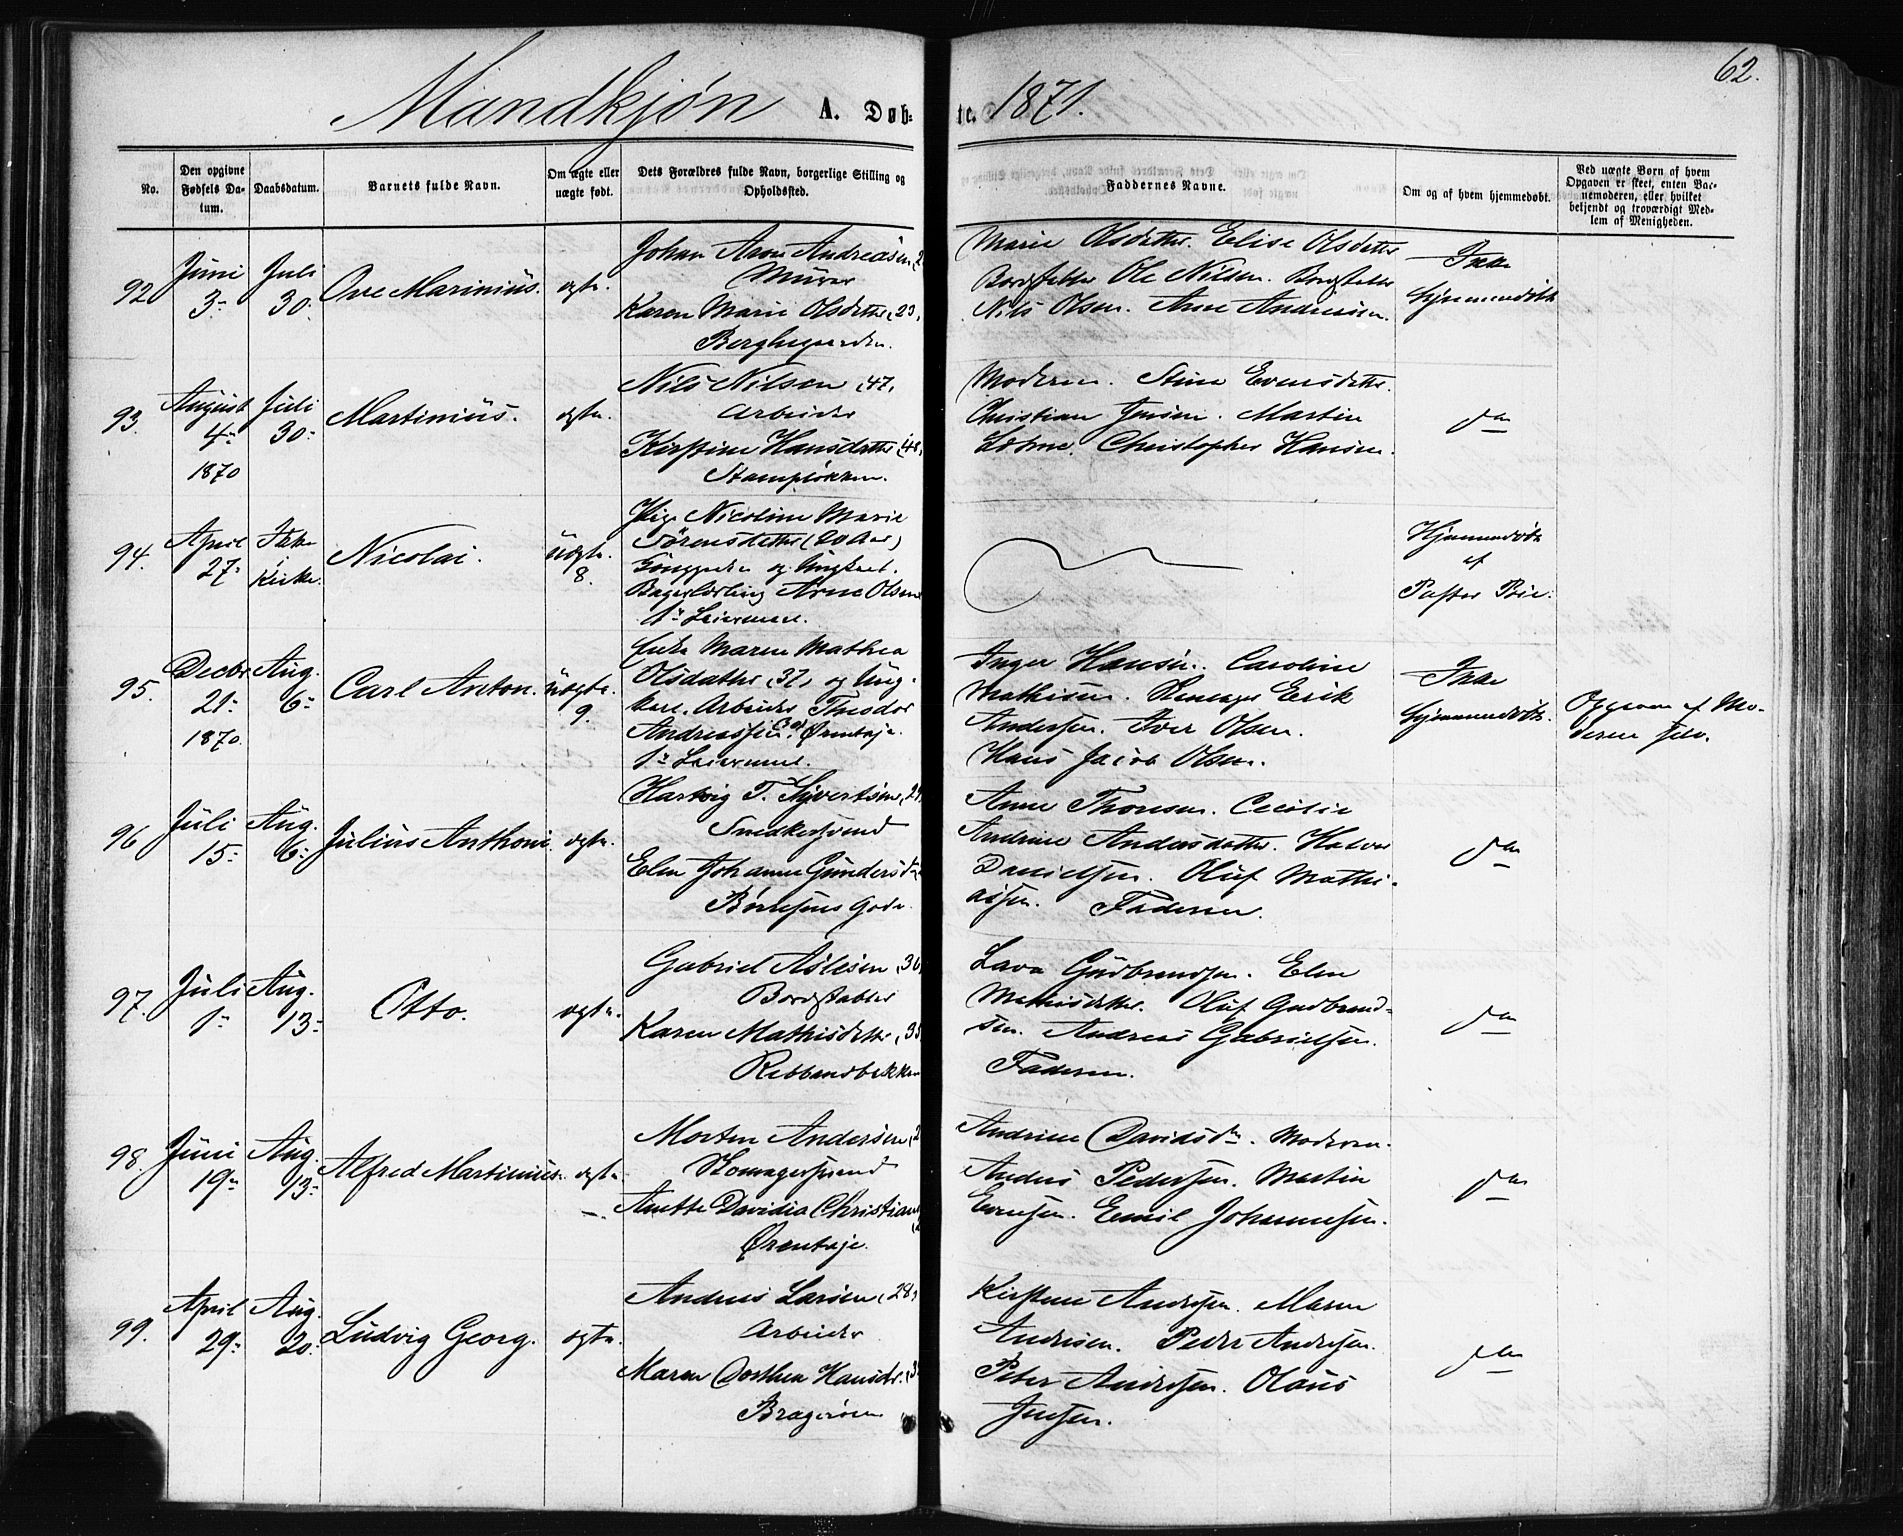 62.
Mandkjøn A. Døb- te. 1871.
No.
Den opgivne Fødsels Datum.
Daabsdatum.
Barnets fulde Navn.
Om ægte eller uægte født.
Dets Forældres fulde Navn, borgerlige Stilling og Opholdssted.
Faddernes Navne.
Om og af hvem hjemmedøbt.
Ved uægte Børn af hvem Opgaven er skeet, enten Barnemoderen, eller hvilket bekjendt og troværdigt Medlem af Menigheden.
92
Juni 3-
Juli 30.
Ove Marinius.
ægte.
Johan Aron Andreasen
Murer
Karen Marie Olsdatter, 29,
Berghegaarden.
Marie Olsdatter. Elise Olsdatter
Bordstabler Ole Nilsen. Bordstabler
Nils Olsen. Arne Andresen.
Ikke
hjemmedøbt
93.
August 4- 1870
Juli 30-
Martinius.
ægte.
Nils Nilsen, 47,
Arbeider
Kirstine Hansdatter, 48,
Stampeløkken.
Moderen. Stine Evensdatter.
Christian Jensen. Martin
Christopher Hansen.
do
94.
April 27-
Ikke i Kirke.
Nicolai.
uægte. 8.
Pige Nicoline Marie
Sørensdatter (20 Aar)
og Ungkarl.
Bagerlærling Arne Olsen
1ste Leiermaal.
Hjemmedøbt
af
Pastor
95.
Decbr 21- 1870.
Aug. 6-
Carl Anton.
uægte. 9.
Enke Maren Mathea
Olsdatter, 37, og Ung-
karl. Arbeider Theodor
Andreassen (30) Ørentaje.
1ste Leiermaal.
Inger Hansen. Caroline
Mathisen. Erik
Andersen. Iver Olsen.
Hans Jacob Olsen.
Ikke
hjemmedøbt.
Opgaven af Mo-
deren selv.
96
Juli 15-
Aug. 6-
Julius Anthoni
ægte.
Hartvig T. Syvertsen
Snedkersvend
Elen Johanne Gundersd
Børresens Gade.
Anne Thoresen. Cecilie
Andrine Andersdatter. Halvor
Danielsen. Oluf Mathi-
asen. Faderen.
do
97.
Juli 1-
Aug. 13-
Otto.
ægte.
Gabriel Aslesen, 36,
Bordstabler
Karen Mathisdatter, 35,
Ribbandbakken
Lava Gudbrandsen. Elen
Mathisdatter. Oluf Gudbrand-
sen. Andreas Gabrielsen.
Faderen.
do
98.
Juni 19-
Aug. 13-
Alfred Martinius.
ægte.
Morten Andersen
Komagersvend
Anette Davidia Christian
Ørentaje.
Andrine Davidsd. Moderen.
Anders Pedersen. Martin
Evensen. Emil Johannesen.
do
99.
April 29-
Aug. 20.
Ludvig Georg.
ægte.
Andreas Larsen, 28,
Arbeider
Maren Dorthea Hansdr.
Bragerøen
Kirstine Andersen. Maren
Andresen. Peder Andresen.
Peter Andersen. Olaus
Jensen.
do